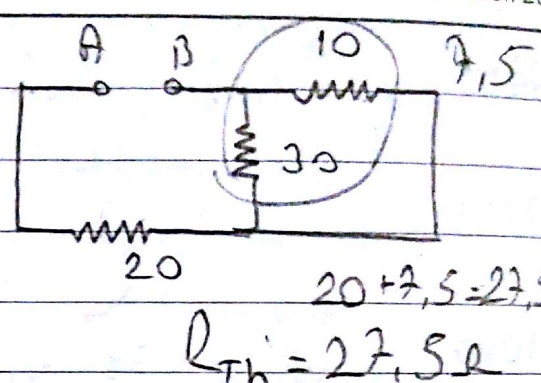 A B 10 7,5
30
20
20+7,5=27,5
RTh = 27,5Ω